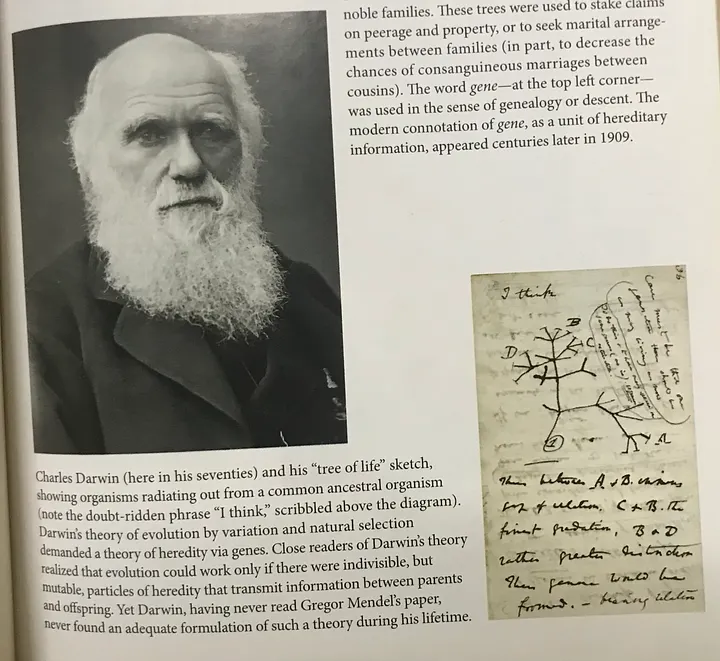 noble families. These trees were used to stake claims
on peerage and property, or to seek marital arrange-
ments between families (in part, to decrease the
chances of consanguineous marriages between
cousins). The word gene—at the top left corner—
was used in the sense of genealogy or descent. The
modern connotation of gene, as a unit of hereditary
information, appeared centuries later in 1909.
I think
B
D
C
A
1
Thus between A & B. immens
gap of relation. C & B. the
finest gradation, B & D
rather greater distinction
Thus genera would be
formed. — bearing relation
Charles Darwin (here in his seventies) and his “tree of life” sketch,
showing organisms radiating out from a common ancestral organism
(note the doubt-ridden phrase “I think,” scribbled above the diagram).
Darwin’s theory of evolution by variation and natural selection
demanded a theory of heredity via genes. Close readers of Darwin’s theory
realized that evolution could work only if there were indivisible, but
mutable, particles of heredity that transmit information between parents
and offspring. Yet Darwin, having never read Gregor Mendel’s paper,
never found an adequate formulation of such a theory during his lifetime.